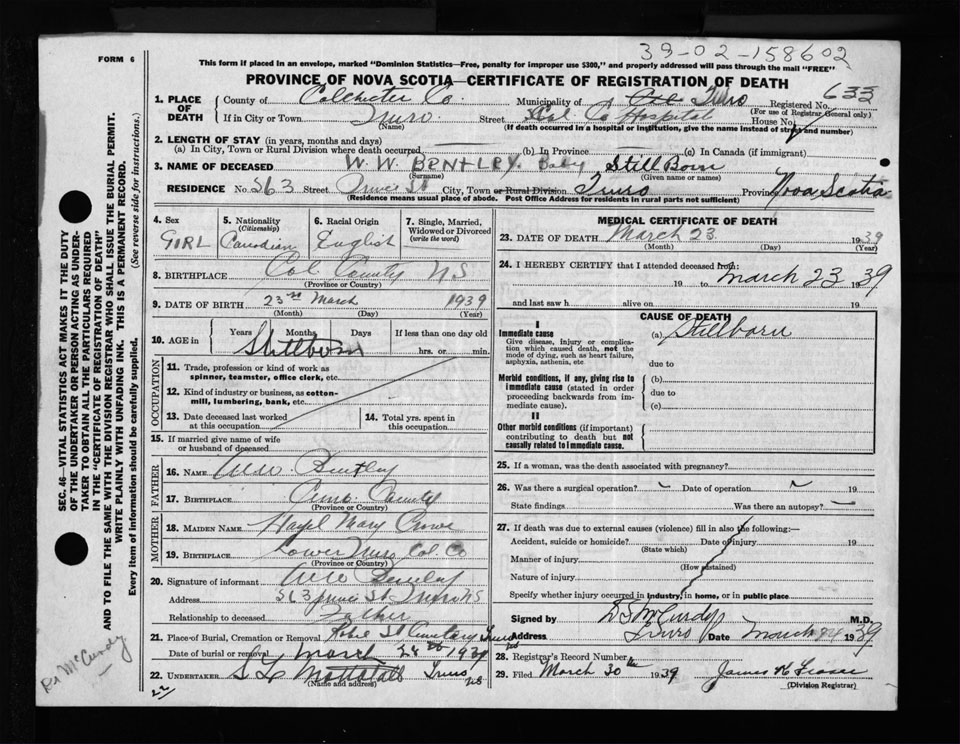 39-02-158602
FORM 6
This form if placed in an envelope, marked "Dominion Statistics—Free, penalty for improper use $300," and properly addressed will pass through the mail "FREE"
PROVINCE OF NOVA SCOTIA—CERTIFICATE OF REGISTRATION OF DEATH
633
1. PLACE OF DEATH
County of Colchester Co. Municipality of Truro Registered No.
(For use of Registrar General only)
If in City or Town Truro. Street Col. Co Hospital House No.
(Name) (If death occurred in a hospital or institution, give the name instead of street and number)
2. LENGTH OF STAY (in years, months and days)
(a) In City, Town or Rural Division where death occurred (b) In Province (c) In Canada (if immigrant)
3. NAME OF DECEASED W. W. BENTLEY. Baby Still Born
(Surname) (Given name or names)
RESIDENCE No. 563 Street Prince St City, Town or Rural Division Truro Province Nova Scotia
(Residence means usual place of abode. Post Office Address for residents in rural parts not sufficient)
4. Sex 5. Nationality 6. Racial Origin 7. Single, Married, Widowed or Divorced
(Citizenship) (write the word)
GIRL Canadian English
8. BIRTHPLACE Col. County NS
(Province or Country)
9. DATE OF BIRTH 23rd March 1939
(Month) (Day) (Year)
10. AGE in Years Months Days If less than one day old
Stillborn hrs. or min.
OCCUPATION
11. Trade, profession or kind of work as spinner, teamster, office clerk, etc.
12. Kind of industry or business, as cotton-mill, lumbering, bank, etc.
13. Date deceased last worked at this occupation
14. Total yrs. spent in this occupation
15. If married give name of wife or husband of deceased
FATHER
16. NAME Bentley
17. BIRTHPLACE County
(Province or Country)
MOTHER
18. MAIDEN NAME Hazel Mary Crowe
19. BIRTHPLACE Lower Truro Col. Co
(Province or Country)
20. Signature of informant
Address 563 prince St Truro NS
Relationship to deceased Father
21. Place of Burial, Cremation or Removal Robie St Cemetery Truro
Date of burial or removal March 24th 1939
22. UNDERTAKER Truro NS
(Name and address)
MEDICAL CERTIFICATE OF DEATH
23. DATE OF DEATH March 23 1939
(Month) (Day) (Year)
24. I HEREBY CERTIFY that I attended deceased from:
19 to March 23 1939
and last saw h alive on 19
CAUSE OF DEATH
I
Immediate cause (a) Stillborn
Give disease, injury or complication which caused death, not the mode of dying, such as heart failure, asphyxia, asthenia, etc
due to
Morbid conditions, if any, giving rise to immediate cause (stated in order proceeding backwards from immediate cause).
(b)
due to
(c)
II
Other morbid conditions (if important) contributing to death but not causally related to immediate cause.
25. If a woman, was the death associated with pregnancy?
26. Was there a surgical operation? Date of operation 19
State findings Was there an autopsy?
27. If death was due to external causes (violence) fill in also the following:—
Accident, suicide or homicide? Date of injury 19
(State which)
Manner of injury
(How sustained)
Nature of injury
Specify whether injury occurred in industry, in home, or in public place
Signed by D S McCurdy M.D.
Address Truro Date March 24 1939
28. Registrar's Record Number
29. Filed March 30th 1939 James H Fraser
(Division Registrar)
SEC. 46—VITAL STATISTICS ACT MAKES IT THE DUTY
OF THE UNDERTAKER OR PERSON ACTING AS UNDER-
TAKER TO OBTAIN ALL THE PARTICULARS REQUIRED
IN THE "CERTIFICATE OF REGISTRATION OF DEATH"
AND TO FILE THE SAME WITH THE DIVISION REGISTRAR WHO SHALL ISSUE THE BURIAL PERMIT.
WRITE PLAINLY WITH UNFADING INK. THIS IS A PERMANENT RECORD.
Every item of information should be carefully supplied. (See reverse side for instructions.)
Dr McCurdy